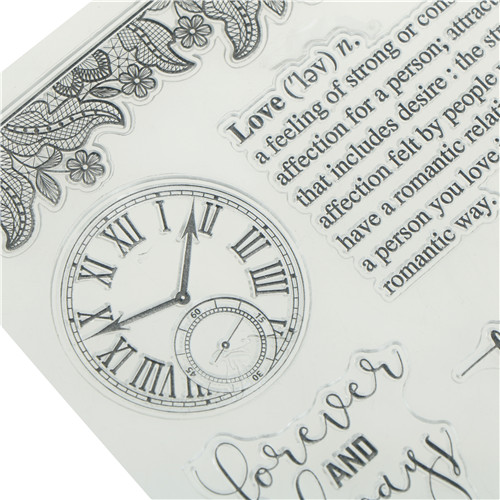 Love ('ləv) n,
a feeling of strong or con
affection for a person; attrac
that includes desire : the st
affection felt by people
have a romantic rela
a person you love i
romantic way.
I
II
III
IIII
60
15
45
30
VII
VIII
IX
X
XI
XII
forever
AND